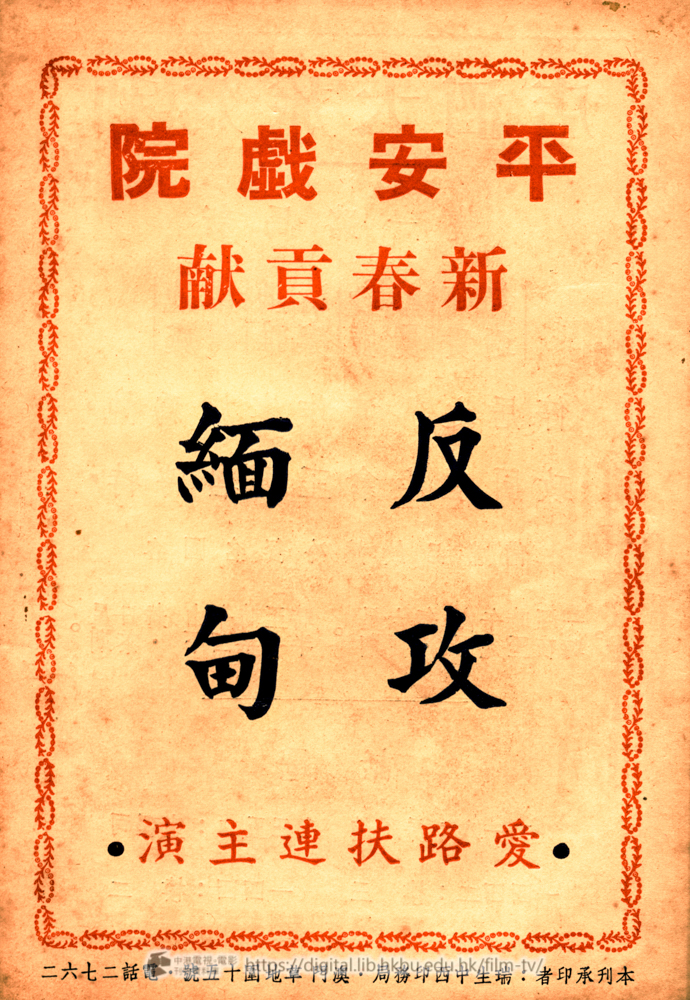 平安戱院
新春貢献
反攻
緬甸
•愛路扶連主演•
本刊承印者：瑞生中西印務局・澳門草地圍十五號・電話二七六二
中港電視·電影
https://digital.lib.hkbu.edu.hk/film-tv/